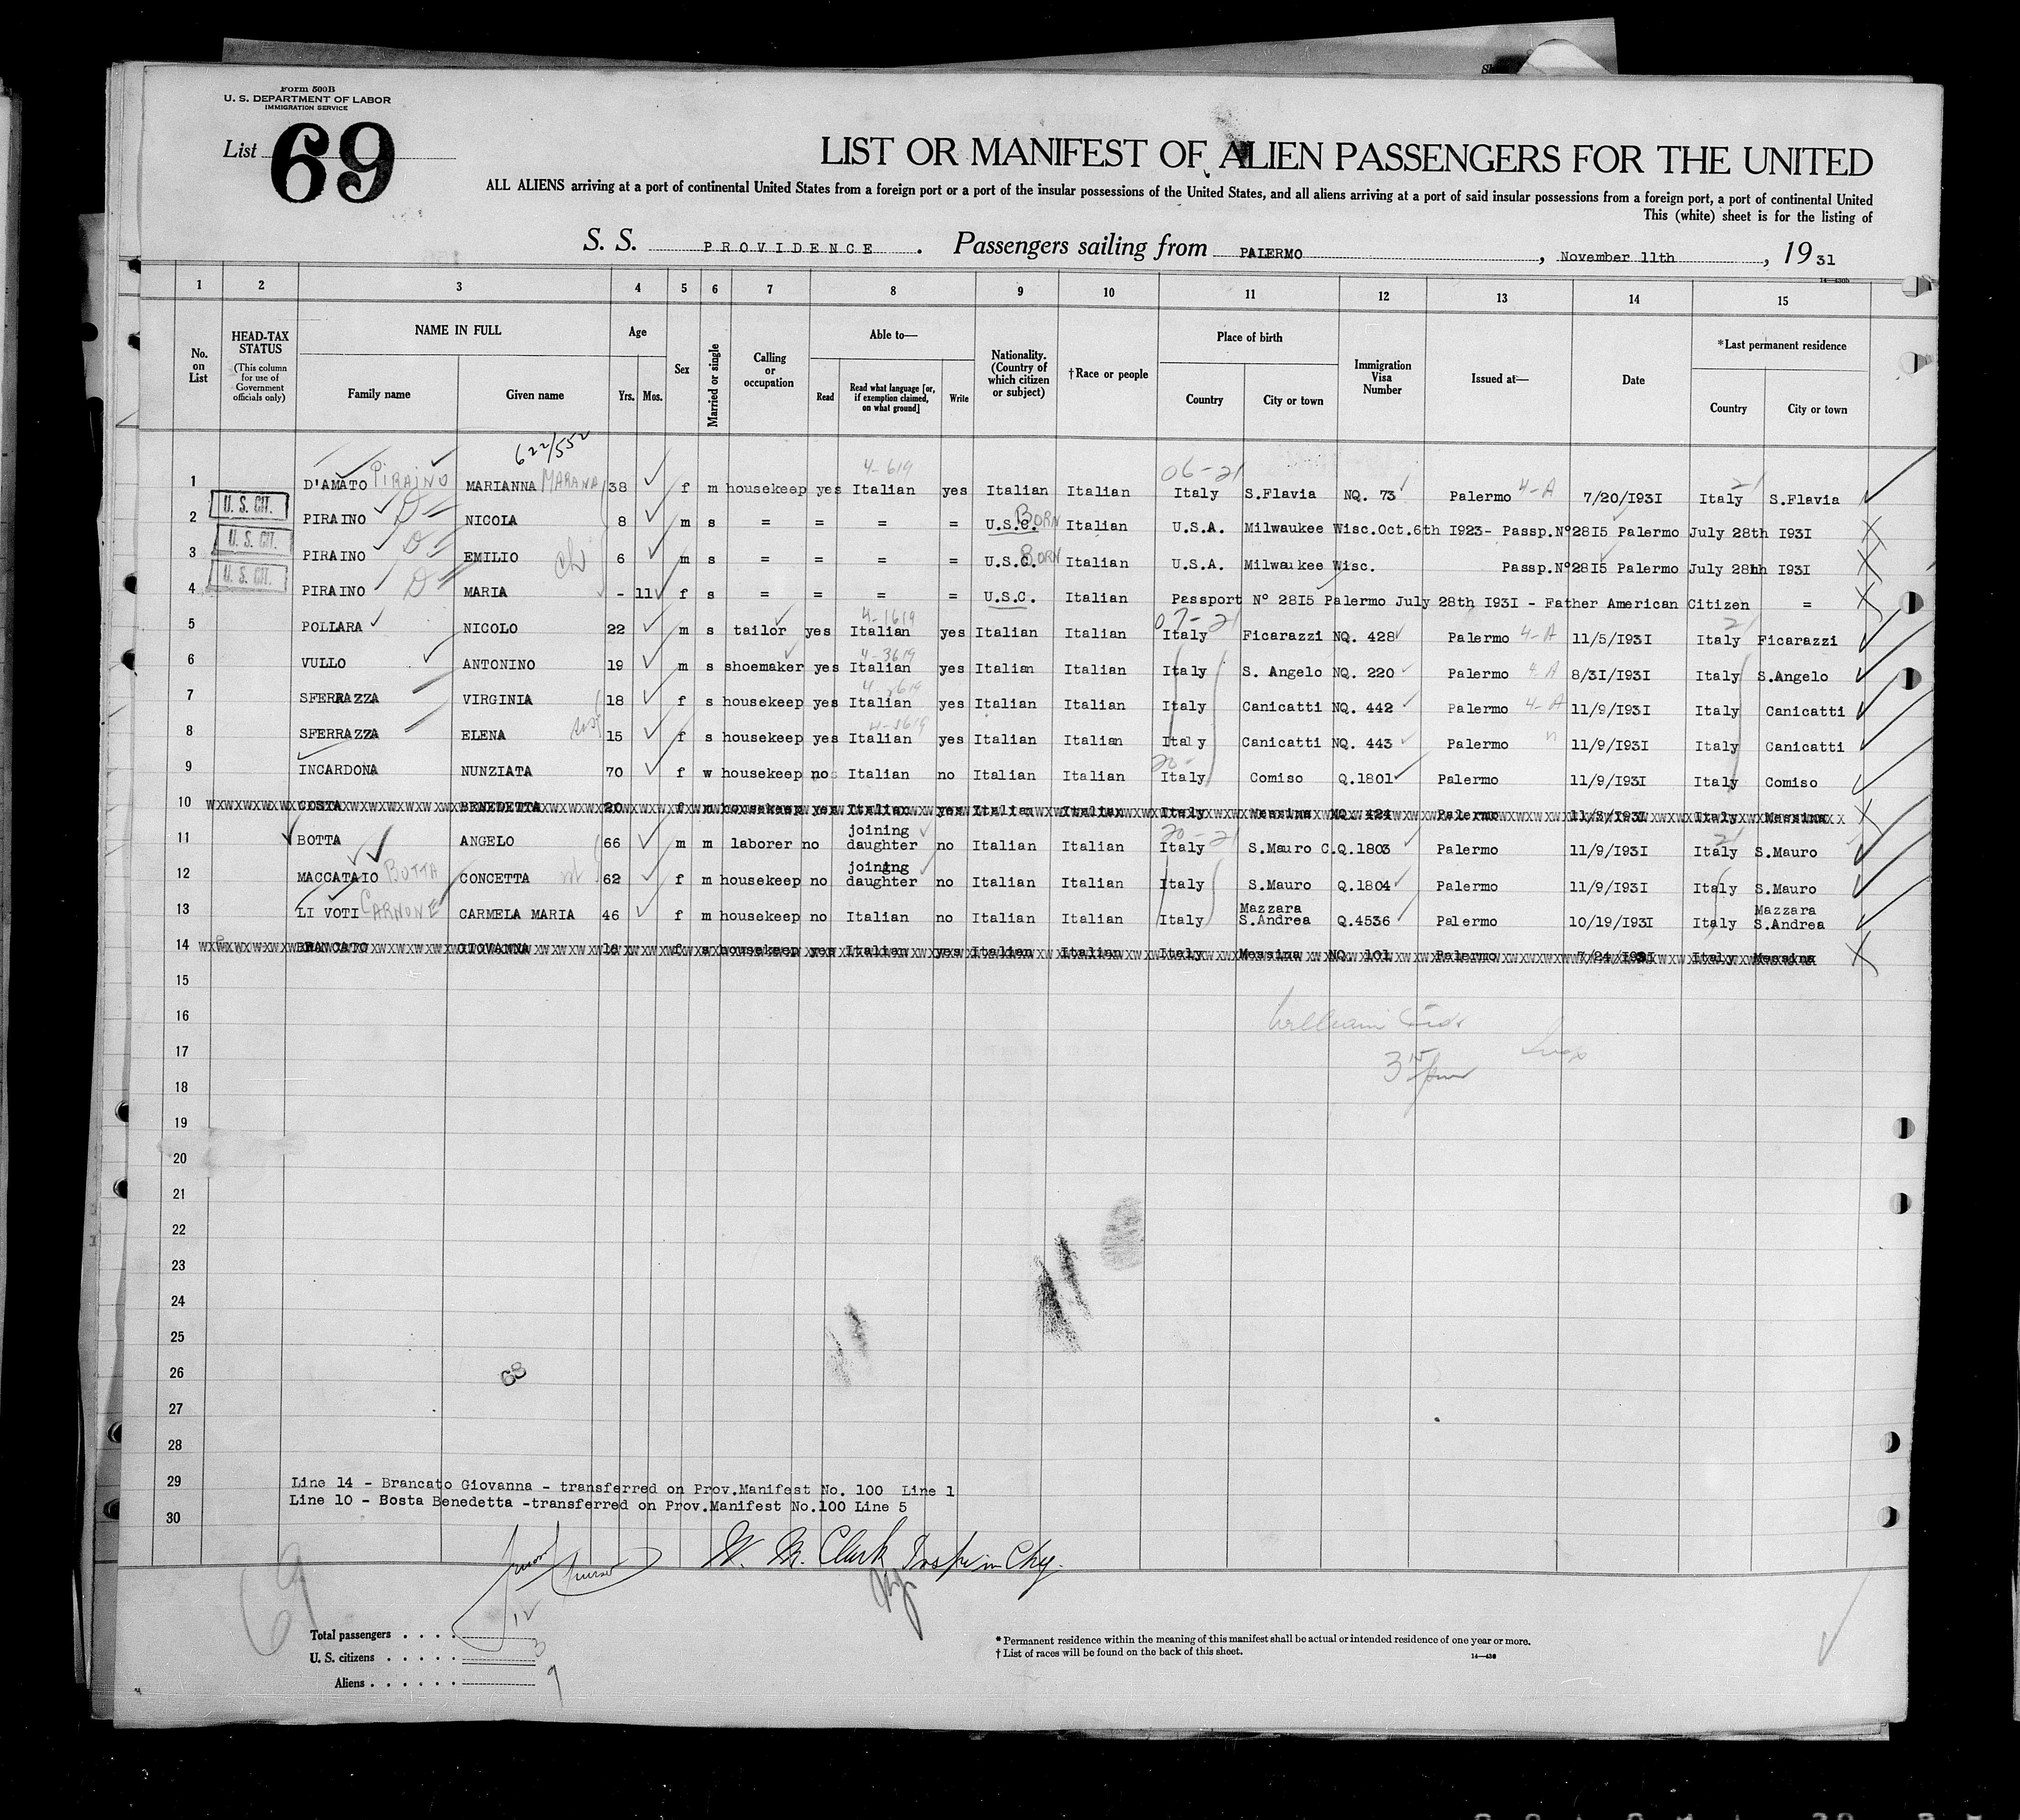 Form 500B
U. S. DEPARTMENT OF LABOR
IMMIGRATION SERVICE
List 69
LIST OR MANIFEST OF ALIEN PASSENGERS FOR THE UNITED
ALL ALIENS arriving at a port of continental United States from a foreign port or a port of the insular possessions of the United States, and all aliens arriving at a port of said insular possessions from a foreign port, a port of continental United
This (white) sheet is for the listing of
S. S. PROVIDENCE . Passengers sailing from PALERMO , November 11th , 1931
1 2 3 4 5 6 7 8 9 10 11 12 13 14 15
No. on List HEAD-TAX STATUS (This column for use of Government officials only) NAME IN FULL Family name Given name Age Yrs. Mos. Sex Married or single Calling or occupation Able to— Read Read what language [or, if exemption claimed, on what ground] Write Nationality. (Country of which citizen or subject) †Race or people Place of birth Country City or town Immigration Visa Number Issued at— Date *Last permanent residence Country City or town
622/552
4-619 06-21
1 D'AMATO PIRAINO MARIANNA MARANA 38 f m housekeep yes Italian yes Italian Italian Italy S.Flavia NQ. 73 Palermo 4-A 7/20/1931 Italy S.Flavia
2 U. S. CIT. PIRAINO NICOLA 8 m s = = = = U.S.C. BORN Italian U.S.A. Milwaukee Wisc.Oct.6th 1923- Passp.N°2815 Palermo July 28th 1931
3 U. S. CIT. PIRAINO EMILIO 6 m s = = = = U.S.C. BORN Italian U.S.A. Milwaukee Wisc. Passp.N°2815 Palermo July 28th 1931
4 U. S. CIT. PIRAINO MARIA - 11 f s = = = = U.S.C. Italian Passport N° 2815 Palermo July 28th 1931 - Father American Citizen =
5 POLLARA NICOLO 22 m s tailor yes Italian yes Italian Italian Italy Ficarazzi NQ. 428 Palermo 4-A 11/5/1931 Italy Ficarazzi
6 VULLO ANTONINO 19 m s shoemaker yes Italian yes Italian Italian Italy S. Angelo NQ. 220 Palermo 4-A 8/31/1931 Italy S.Angelo
7 SFERRAZZA VIRGINIA 18 f s housekeep yes Italian yes Italian Italian Italy Canicatti NQ. 442 Palermo 4-A 11/9/1931 Italy Canicatti
8 SFERRAZZA ELENA 15 f s housekeep yes Italian yes Italian Italian Italy Canicatti NQ. 443 Palermo 11/9/1931 Italy Canicatti
9 INCARDONA NUNZIATA 70 f w housekeep no Italian no Italian Italian Italy Comiso Q.1801 Palermo 11/9/1931 Italy Comiso
10 COSTA BENEDETTA 20 f m housekeep yes Italian yes Italian Italian Italy Messina NQ 424 Palermo 11/5/1931 Italy Messina
11 BOTTA ANGELO 66 m m laborer no joining daughter no Italian Italian Italy S.Mauro C.Q.1803 Palermo 11/9/1931 Italy S.Mauro
12 MACCATAIO BOTTA CONCETTA 62 f m housekeep no joining daughter no Italian Italian Italy S.Mauro Q.1804 Palermo 11/9/1931 Italy S.Mauro
13 LI VOTI CARNONE CARMELA MARIA 46 f m housekeep no Italian no Italian Italian Italy Mazzara S.Andrea Q.4536 Palermo 10/19/1931 Italy Mazzara S.Andrea
14 BRANCATO GIOVANNA 18 f s housekeep yes Italian yes Italian Italian Italy Messina NQ. 101 Palermo 7/24/1931 Italy Messina
15
16 William
17
18
19
20
21
22
23
24
25
26 68
27
28
29 Line 14 - Brancato Giovanna - transferred on Prov.Manifest No. 100 Line 1
Line 10 - Bosta Benedetta -transferred on Prov.Manifest No.100 Line 5
30
W. M. Clark
69
Total passengers . . . . 12
U. S. citizens . . . . . 3
Aliens . . . . . . 9
* Permanent residence within the meaning of this manifest shall be actual or intended residence of one year or more.
† List of races will be found on the back of this sheet.
14—430